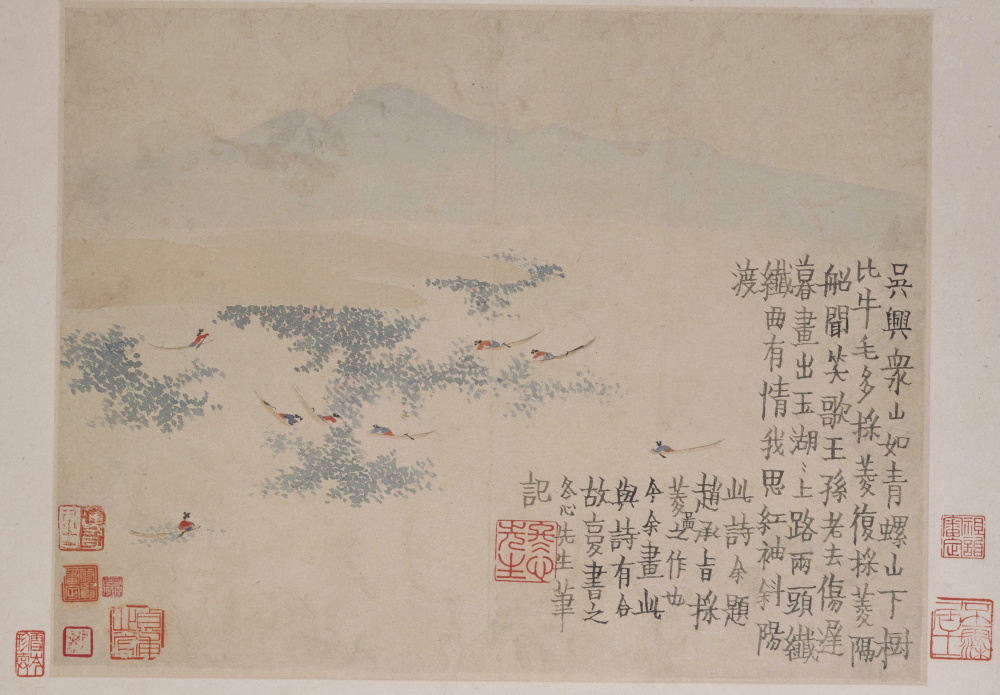 吳興衆山如青螺山下樹
比牛毛多採菱復採菱隔
船聞笑歌王孫老去傷遲
暮畫出玉湖〻上路兩頭纖
纖曲有情我思紅袖斜陽
渡
此詩余題
趙承旨採
菱之作也
今余畫此
與詩有合
故書之
冬心先生筆
記
冬心先生